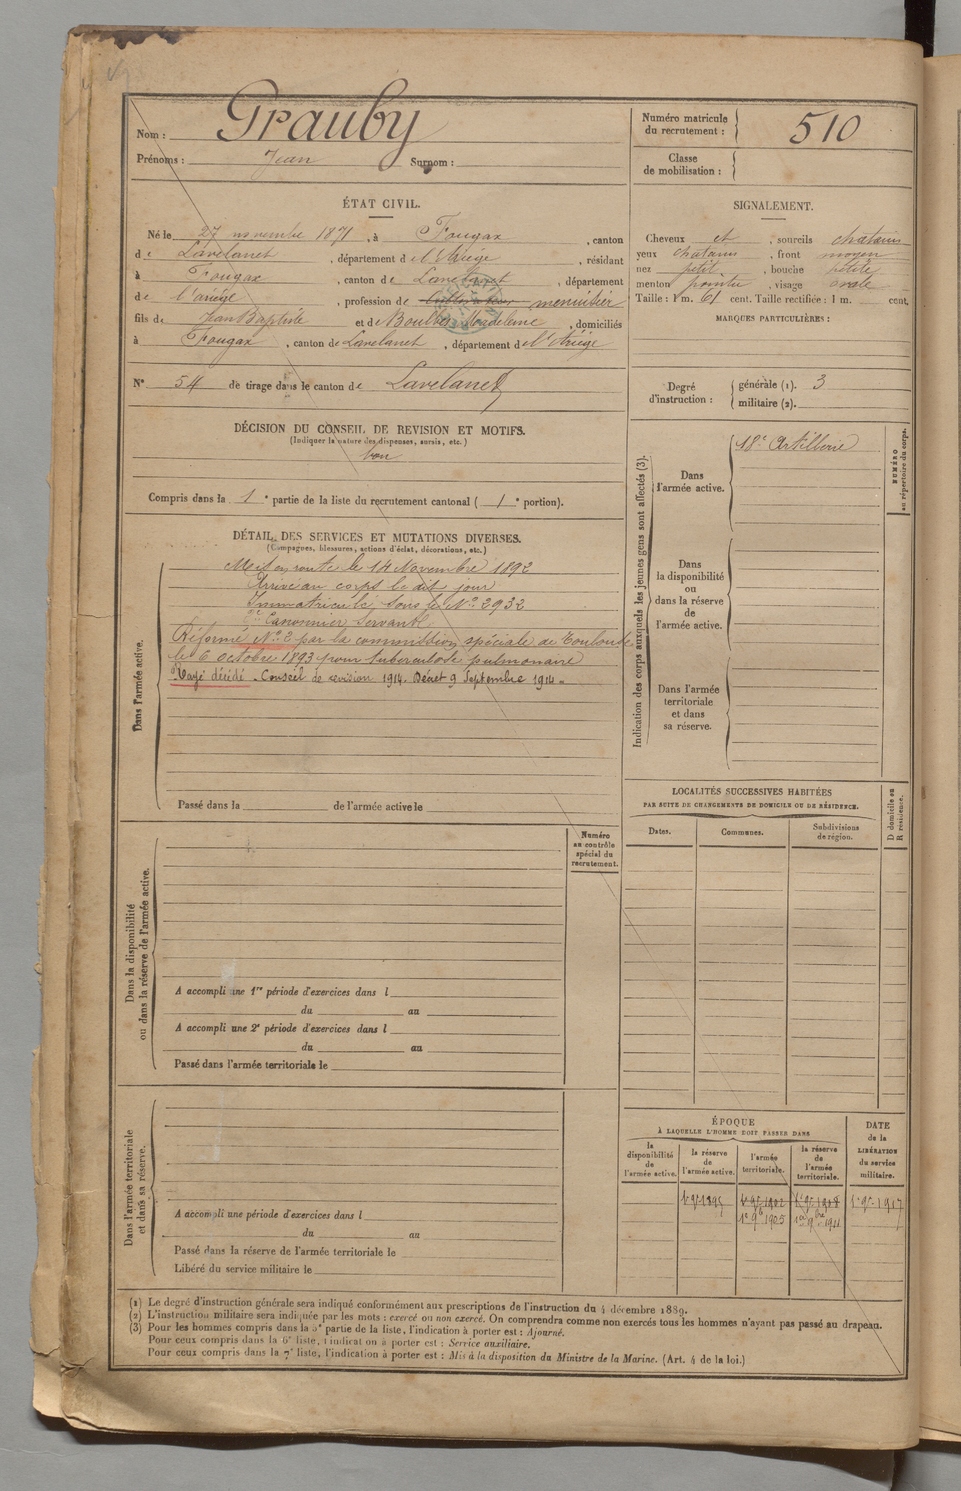 Nom : Grauby
Prénoms : Jean Surnom :
Numéro matricule
du recrutement : 510
Classe
de mobilisation :
ÉTAT CIVIL.
Né le 27 novembre 1871, à Fougax, canton
de Lavelanet, département de l'Ariège, résidant
à Fougax, canton de Lavelanet, département
de l'ariège, profession de cultivateur menuisier
fils de Jean Baptiste et de Boulbes Madeleine, domiciliés
à Fougax, canton de Lavelanet, département de l'Ariège
N° 54 de tirage dans le canton de Lavelanet
SIGNALEMENT.
Cheveux et, sourcils chatains
yeux chatains, front moyen
nez petit, bouche petite
menton pointu, visage ovale
Taille : 1 m. 61 cent. Taille rectifiée : 1 m. cent.
MARQUES PARTICULIÈRES :
Degré
d'instruction :
générale (1). 3
militaire (2).
DÉCISION DU CONSEIL DE REVISION ET MOTIFS.
(Indiquer la nature des dispenses, sursis, etc.)
bon
Compris dans la 1e partie de la liste du recrutement cantonal ( 1e portion).
DÉTAIL DES SERVICES ET MUTATIONS DIVERSES.
(Campagnes, blessures, actions d'éclat, décorations, etc.)
Dans l'armée active.
Mis en route le 14 Novembre 1892
Arrivé au corps le dit jour
Immatriculé sous le N° 2932
2e Canonnier Servant
Réformé N° 2 par la commission spéciale de Toulouse
le 6 octobre 1893 pour tuberculose pulmonaire
Rayé décédé. Conseil de revision 1914. Décret 9 Septembre 1914.
Passé dans la de l'armée active le
Indication des corps auxquels les jeunes gens sont affectés (3).
Dans
l'armée active.
18e Artillerie
NUMÉRO
au répertoire du corps.
Dans
la disponibilité
ou
dans la réserve
de
l'armée active.
Dans l'armée
territoriale
et dans
sa réserve.
LOCALITÉS SUCCESSIVES HABITÉES
PAR SUITE DE CHANGEMENTS DE DOMICILE OU DE RÉSIDENCE.
Dates.
Communes.
Subdivisions
de région.
D domicile ou
R résidence.
Dans la disponibilité
ou dans la réserve de l'armée active.
Numéro
au contrôle
spécial du
recrutement.
A accompli une 1re période d'exercices dans l
du au
A accompli une 2e période d'exercices dans l
du au
Passé dans l'armée territoriale le
Dans l'armée territoriale
et dans sa réserve.
A accompli une période d'exercices dans l
du au
Passé dans la réserve de l'armée territoriale le
Libéré du service militaire le
ÉPOQUE
À LAQUELLE L'HOMME DOIT PASSER DANS
la
disponibilité
de
l'armée active.
la réserve
de
l'armée active.
l'armée
territoriale.
la réserve
de
l'armée
territoriale.
DATE
de la
LIBÉRATION
du service
militaire.
1er 9bre 1895 1er 9bre 1902 1er 9bre 1908 1er 9bre 1917
1er 9bre 1905 1er 9bre 1911
(1) Le degré d'instruction générale sera indiqué conformément aux prescriptions de l'instruction du 4 décembre 1889.
(2) L'instruction militaire sera indiquée par les mots : exercé ou non exercé. On comprendra comme non exercés tous les hommes n'ayant pas passé au drapeau.
(3) Pour les hommes compris dans la 5e partie de la liste, l'indication à porter est : Ajourné.
Pour ceux compris dans la 6e liste, l'indication à porter est : Service auxiliaire.
Pour ceux compris dans la 7e liste, l'indication à porter est : Mis à la disposition du Ministre de la Marine. (Art. 4 de la loi.)